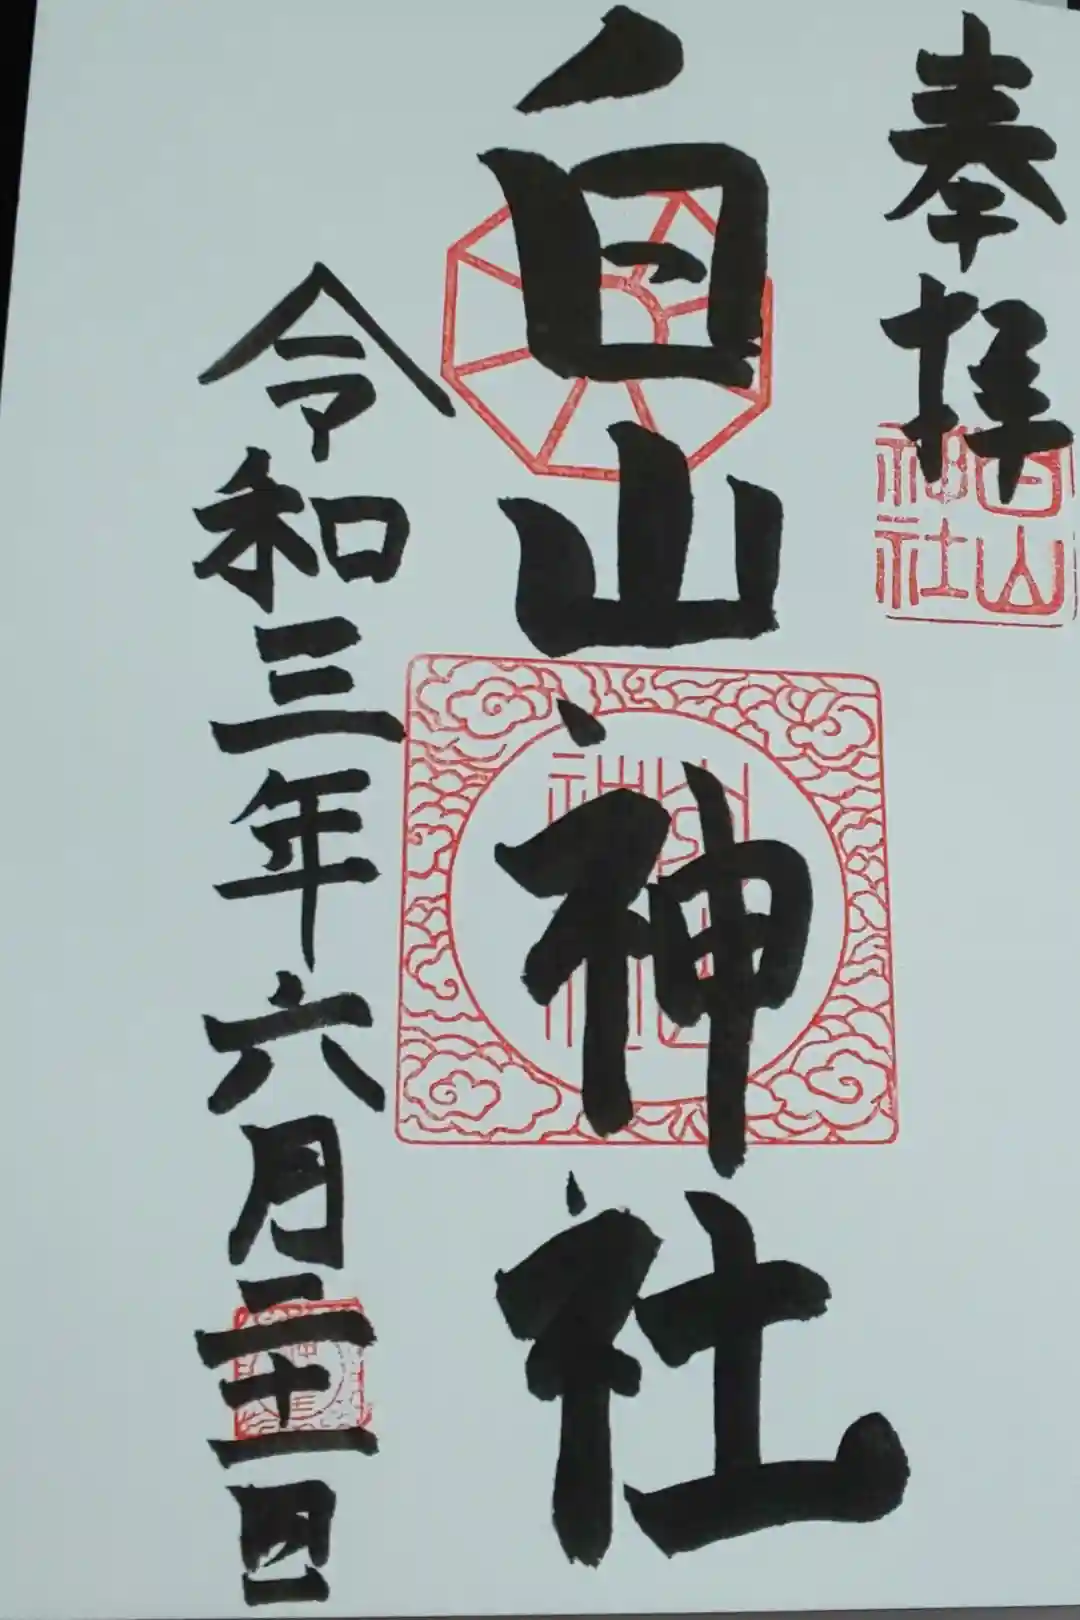 奉拝
白山
神社
白山神社
令和三年六月二十一日